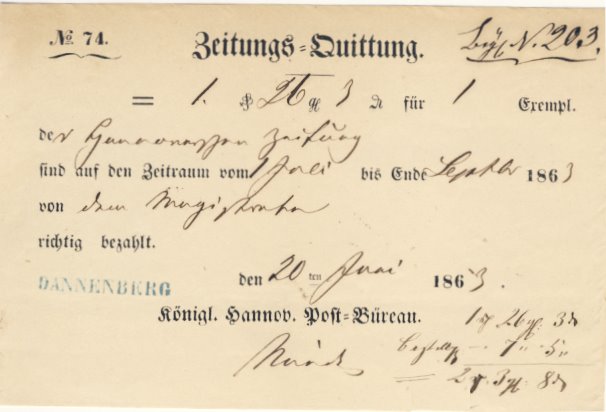 № 74.
Zeitungs-Quittung.
Bzf. N. 203.
= 1. ₰ 26 gl 3 ₰ für 1 Exempl.
der Hannoverschen Zeitung
sind auf den Zeitraum vom 1 Juli bis Ende Septbr 1863
von dem Magistrate
richtig bezahlt.
DANNENBERG
den 20ten Juni 1863.
Königl. Hannov. Post-Büreau.
1 26 3
7 5
2 3 8